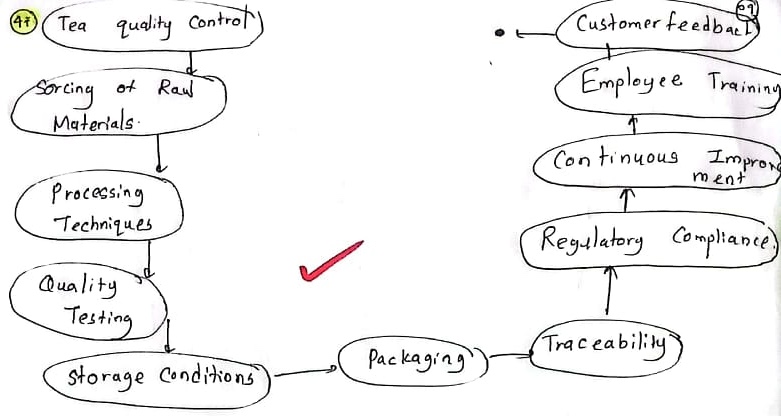 47
Tea quality Control
Sorcing of Raw
Materials.
Processing
Techniques
Quality
Testing
Storage Conditions
Packaging
Traceability
Regulatory Compliance.
Continuous Improve
ment
Employee Training
Customer feedback
09